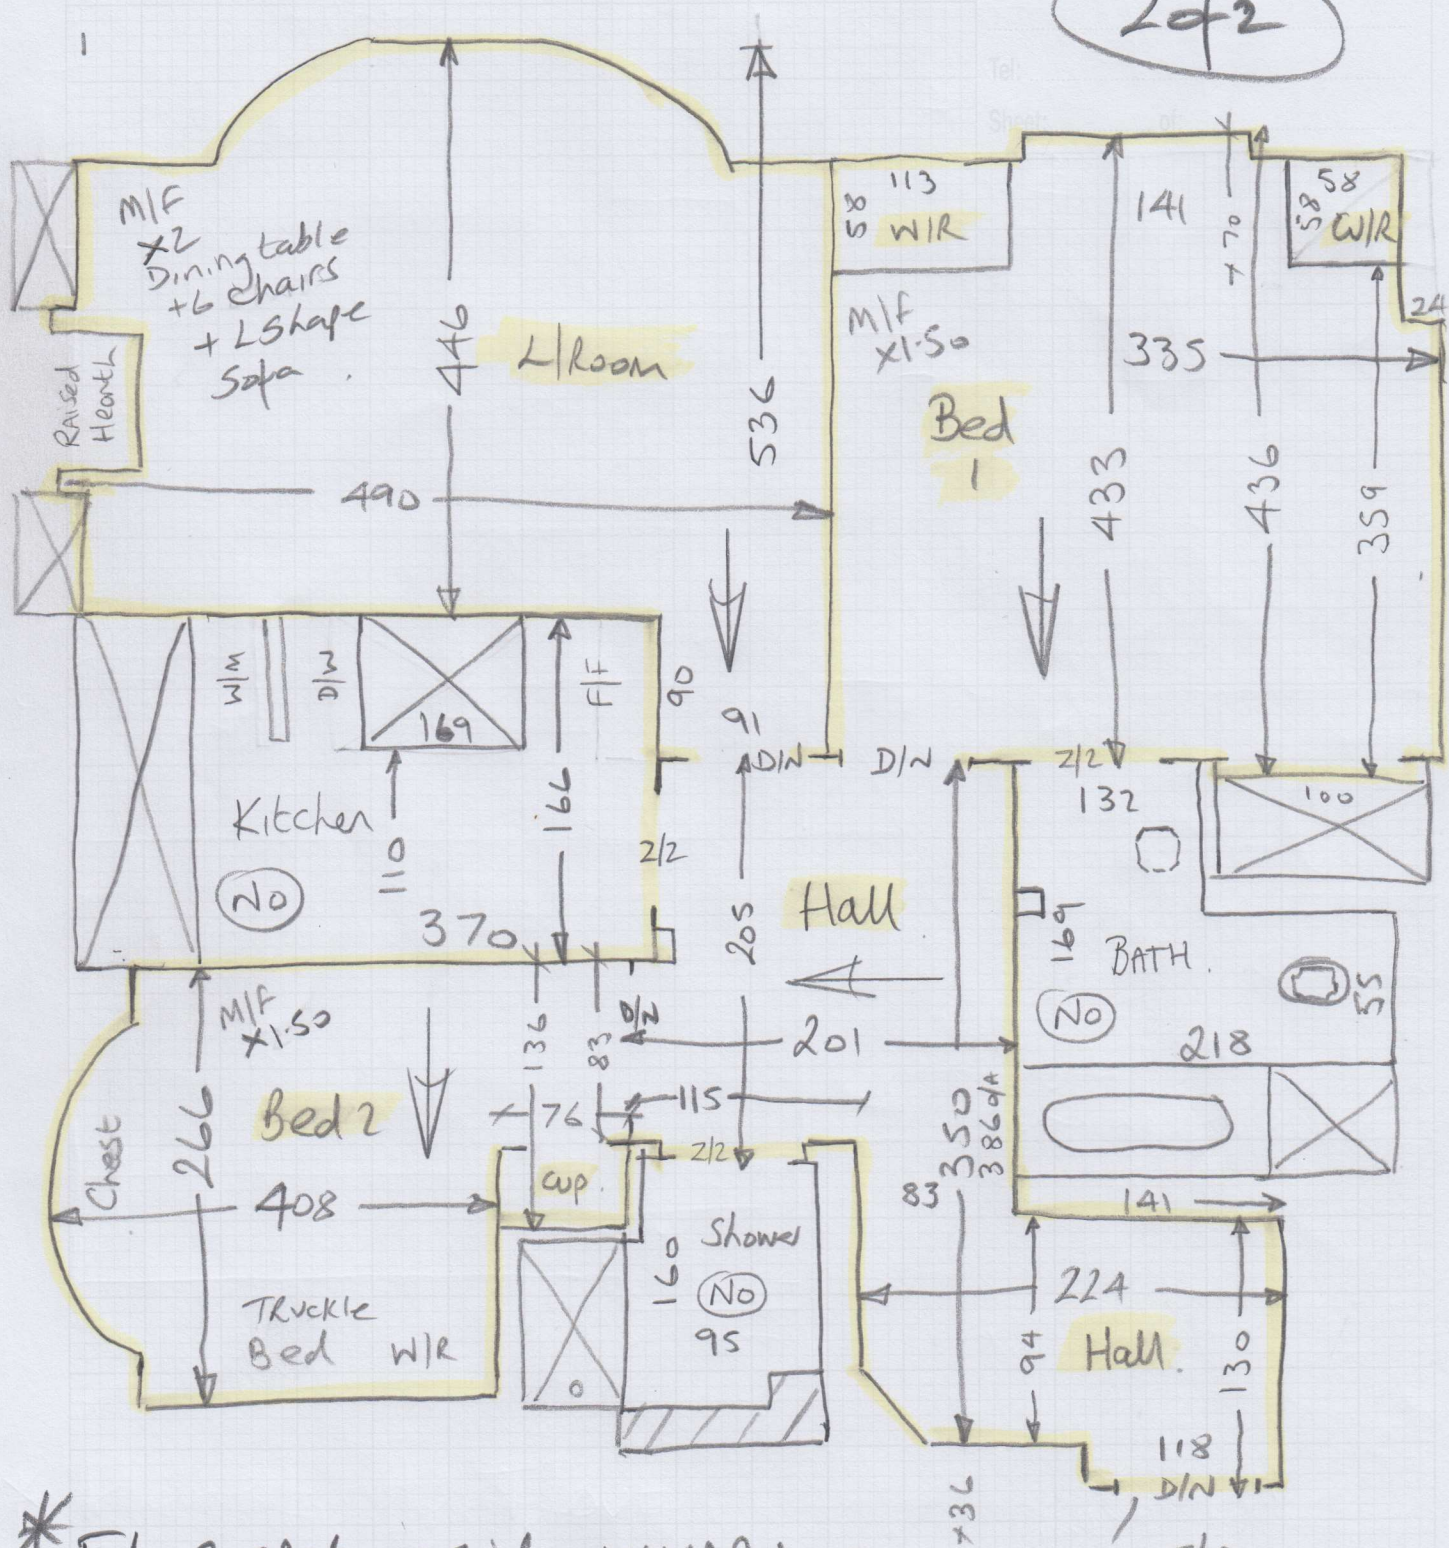 2 of 2
1
Tel:
Sheet: of:
M/F
x2
Dining table
+6 chairs
+ L Shape
Sofa
RAISED
Hearth
446
L/Room
490
536
58
113
W/R
M/F
x1.50
Bed
1
141
+70
58
58
W/R
24
335
433
436
359
W/M
D/W
169
F/F
90
91
D/N
D/N
2/2
132
100
Kitchen
No
110
166
370
2/2
205
Hall
169
BATH.
No
55
218
M/F
x1.50
136
83
201
Bed 2
76
115
Chest
266
408
cup.
2/2
350
386 o/A
83
141
Shower
No
160
95
224
94
Hall.
130
TRuckle
Bed
W/R
118
D/N
+36
*